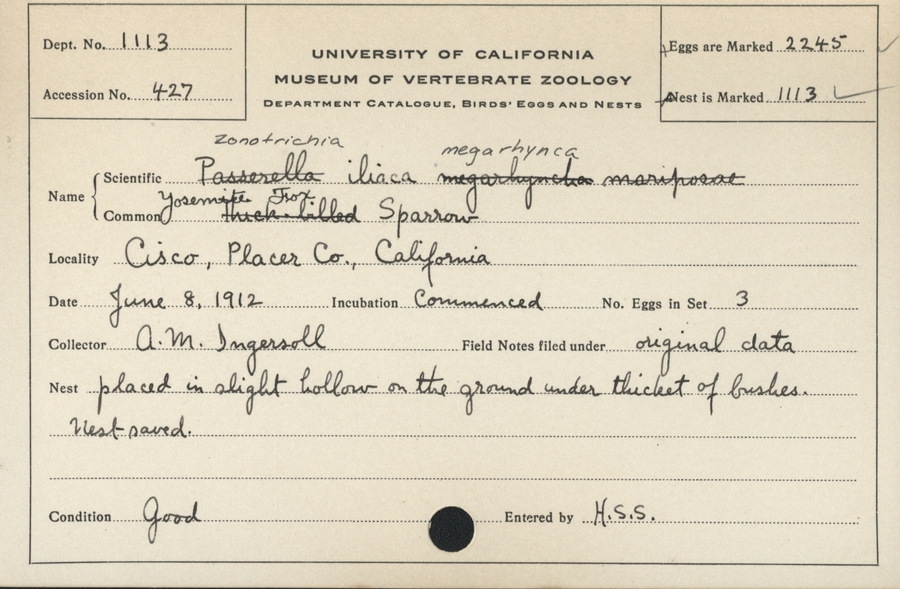 Dept. No. 1113
Accession No. 427
UNIVERSITY OF CALIFORNIA
MUSEUM OF VERTEBRATE ZOOLOGY
DEPARTMENT CATALOGUE, BIRDS' EGGS AND NESTS
Eggs are Marked 2245
Nest is Marked 1113
zonotrichia megarhynca
Name Scientific Passerella iliaca megarhyncha mariposae
Yosemite Fox
Common thick-billed Sparrow
Locality Cisco, Placer Co., California
Date June 8, 1912 Incubation Commenced No. Eggs in Set 3
Collector A. M. Ingersoll Field Notes filed under original data
Nest placed in slight hollow on the ground under thicket of bushes.
Nest saved.
Condition Good Entered by H.S.S.